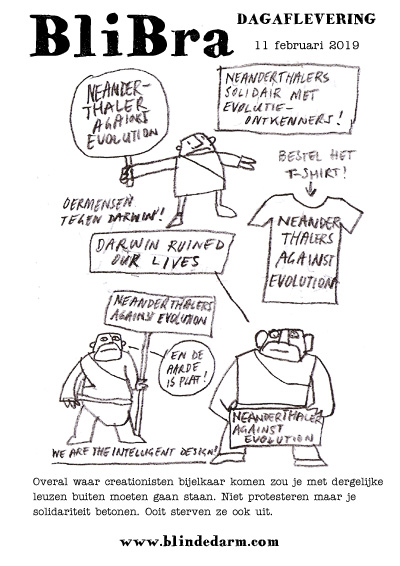 BliBra
DAGAFLEVERING
11 februari 2019
NEANDER-
THALER
AGAINST
EVOLUTION
NEANDERTHALERS
SOLIDAIR MET
EVOLUTIE-
ONTKENNERS!
BESTEL HET
T-SHIRT!
OERMENSEN
TEGEN DARWIN!
NEANDER
THALERS
AGAINST
EVOLUTION
DARWIN RUINED
OUR LIVES
NEANDERTHALERS
AGAINST EVOLUTION
EN DE
AARDE
IS PLAT!
NEANDERTHALER
AGAINST
EVOLUTION
WE ARE THE INTELLIGENT DESIGN!
Overal waar creationisten bijelkaar komen zou je met dergelijke
leuzen buiten moeten gaan staan. Niet protesteren maar je
solidariteit betonen. Ooit sterven ze ook uit.
www.blindedarm.com